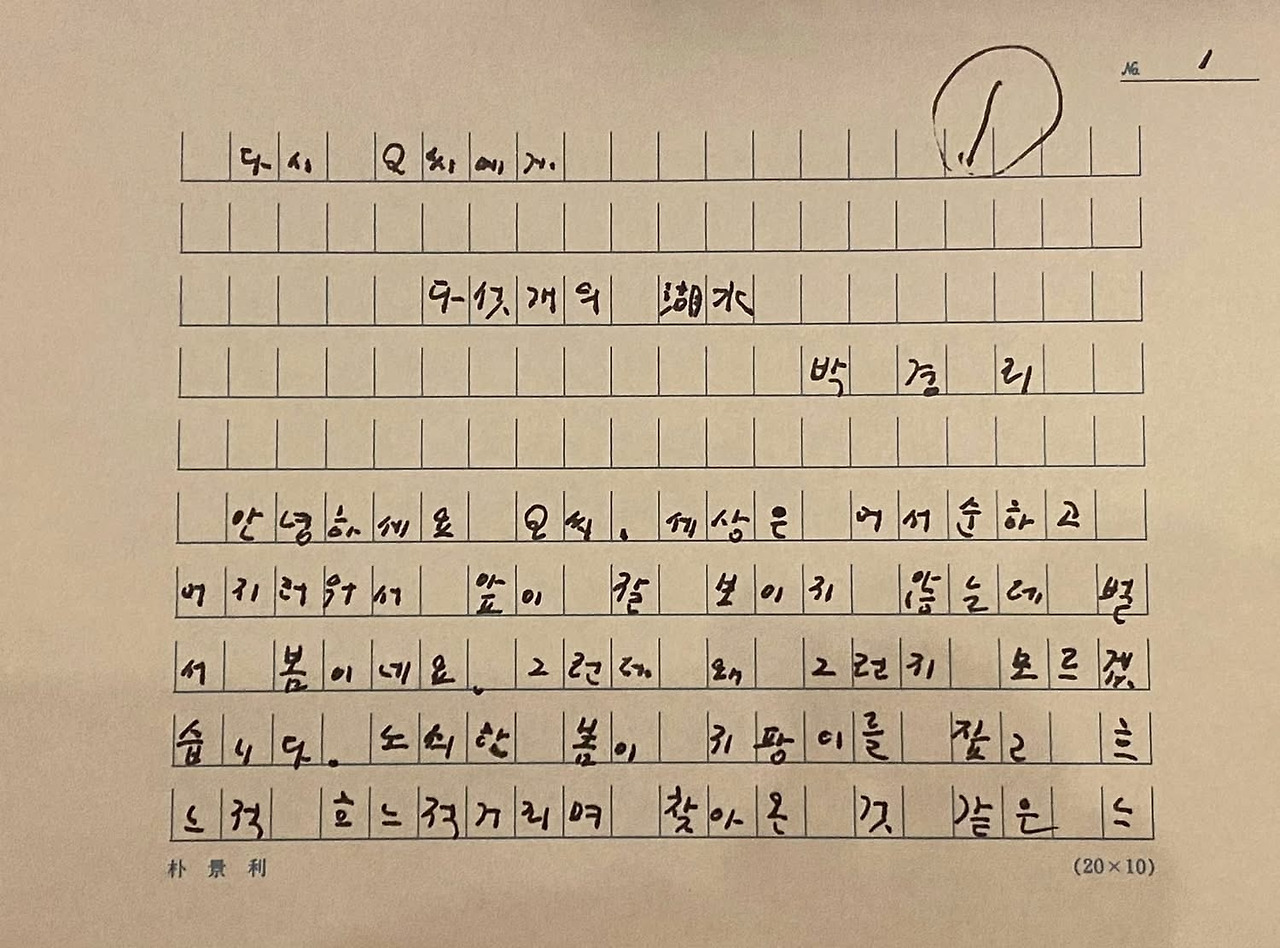 № 1
1
다시 Q씨에게
다섯개의 湖水
박 경 리
안녕하세요 Q씨. 세상은 어서순하고
어지러워서 앞이 잘 보이지 않는데 벌
서 봄이네요. 그런데 왜 그런지 모르겠
습니다. 노쇠한 봄이 지팡이를 짚고 흐
느적 흐느적거리며 찾아온 것 같은 느
朴景利
(20×10)